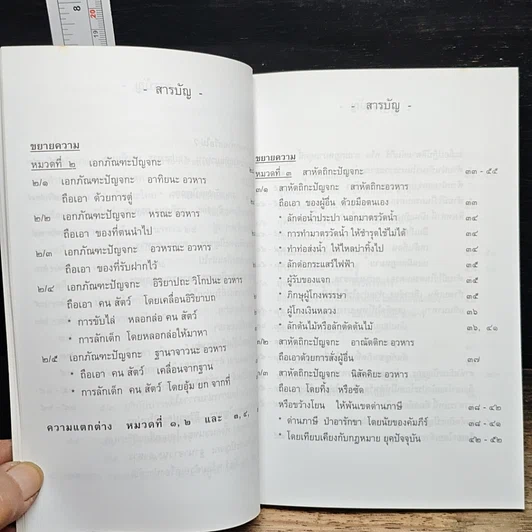 - สารบัญ -
ขยายความ
หมวดที่ ๒ เอกภัณฑะปัญจกะ
๒/๑ เอกภัณฑะปัญจกะ อาทิยนะ อวหาร
ถือเอา ด้วยการตู่
๒/๒ เอกภัณฑะปัญจกะ หรณะ อวหาร
ถือเอา ของที่ตนนำไป
๒/๓ เอกภัณฑะปัญจกะ อวหรณะ อวหาร
ถือเอา ของที่รับฝากไว้
๒/๔ เอกภัณฑะปัญจกะ อิริยาปถะ วิโกปนะ อวหาร
ถือเอา คน สัตว์ โดยเคลื่อนอิริยาบถ
* การขับไล่ หลอกล่อ คน สัตว์
* การลักเด็ก โดยหลอกล่อให้มาหา
๒/๕ เอกภัณฑะปัญจกะ ฐานาจาวนะ อวหาร
* ถือเอา คน สัตว์ เคลื่อนจากฐาน
* การลักเด็ก คน สัตว์ โดยอุ้ม ยก จากที่
ความแตกต่าง หมวดที่ ๑,๒ และ ๓,๔,
- สารบัญ -
ขยายความ
หมวดที่ ๓ สาหัตถิกะปัญจกะ ๓๓ - ๔๕
๓/๑ สาหัตถิกะปัญจกะ สาหัตถิกะอวหาร
ถือเอา ของผู้อื่น ด้วยมือตนเอง ๓๓
* ลักต่อน้ำประปา นอกมาตรวัดน้ำ ๓๔
* การทำมาตรวัดน้ำ ให้ชำรุดใช้ไม่ได้ ๓๔
* ทำท่อส่งน้ำ ให้ไหลบ่าทิ้งไป ๓๔
* ลักต่อกระแสไฟฟ้า ๓๕
* ผู้รับของแจก ๓๕
* ภิกษุผู้โกงพรรษา ๓๕
* ผู้โกงเงินหลวง ๓๖
* ลักต้นไม้หรือลักตัดต้นไม้ ๓๖, ๔๑
๓/๒ สาหัตถิกะปัญจกะ อาณัตติกะ อวหาร
ถือเอาด้วยการสั่งผู้อื่น ๓๗
/๓ สาหัตถิกะปัญจกะ นิสัคคิยะ อวหาร
ถือเอา โดยทิ้ง หรือซัด
หรือขว้างโยน ให้พ้นเขตด่านภาษี ๓๘ - ๔๒
* ด่านภาษี ป่าอารักขา โดยนัยของคัมภีร์ ๓๘ - ๔๑
* โดยเทียบเคียงกับกฎหมาย ยุคปัจจุบัน ๔๒ - ๕๒